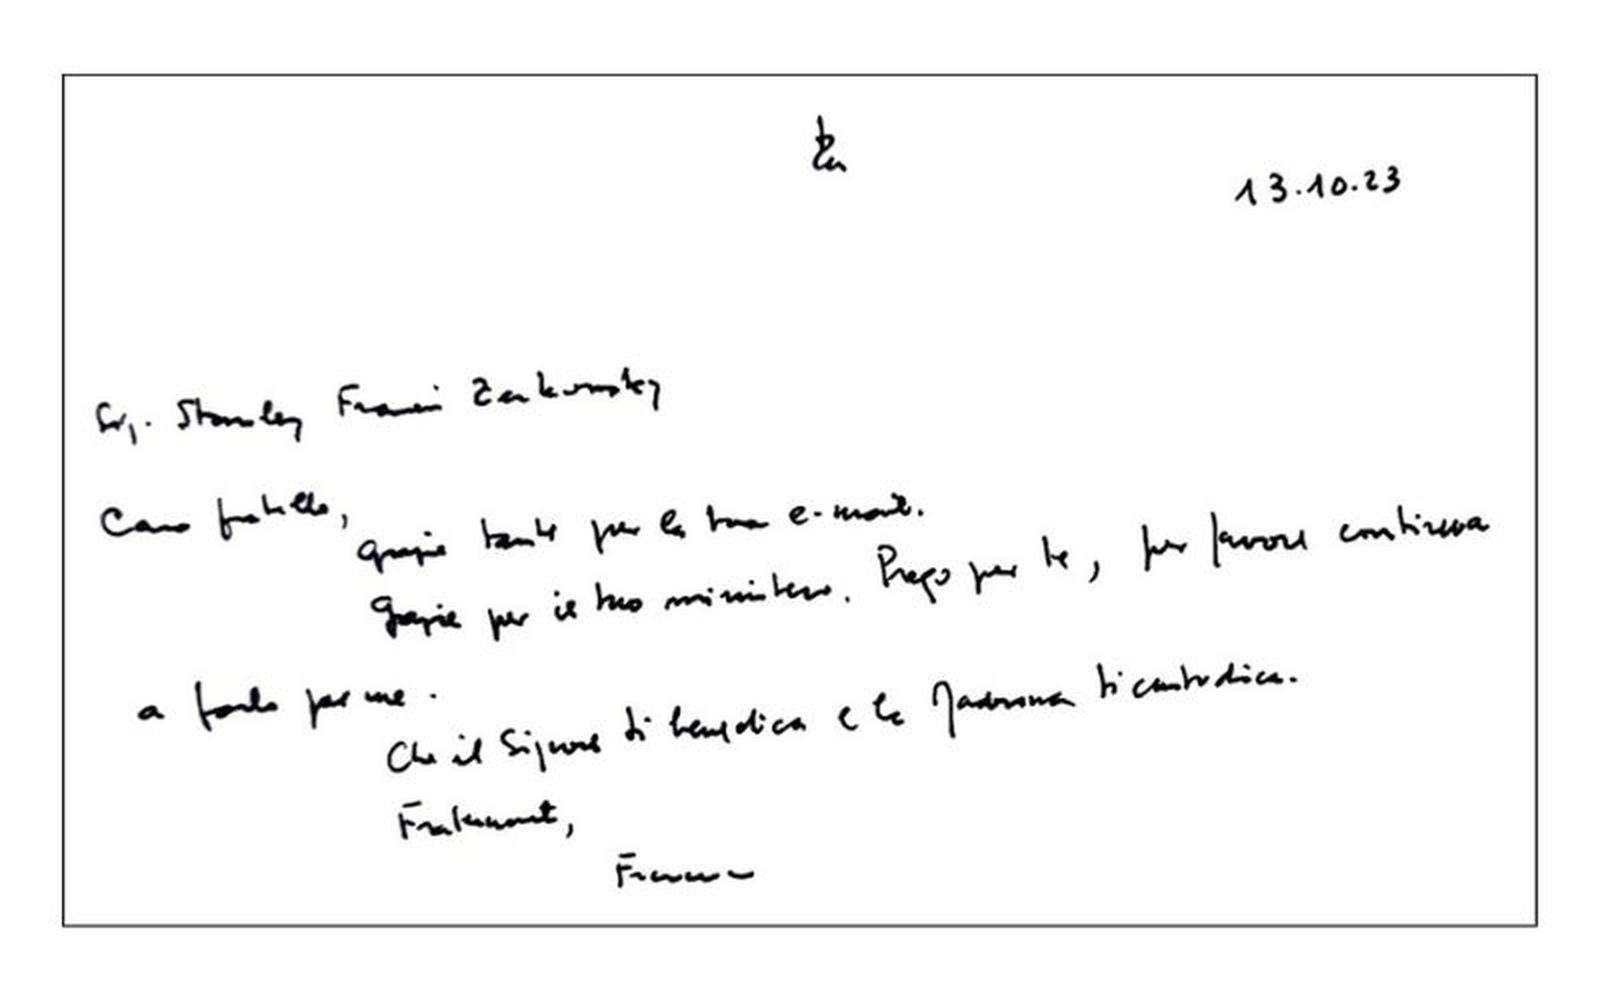 13.10.23
Sr. Stanley Francis
Caro fratello,
grazie tante per la tua e-mail.
Grazie per il tuo ministero. Prego per te, per favore continua
a farlo per me.
Che il Signore ti benedica e la Madonna ti custodisca.
Fraternamente,